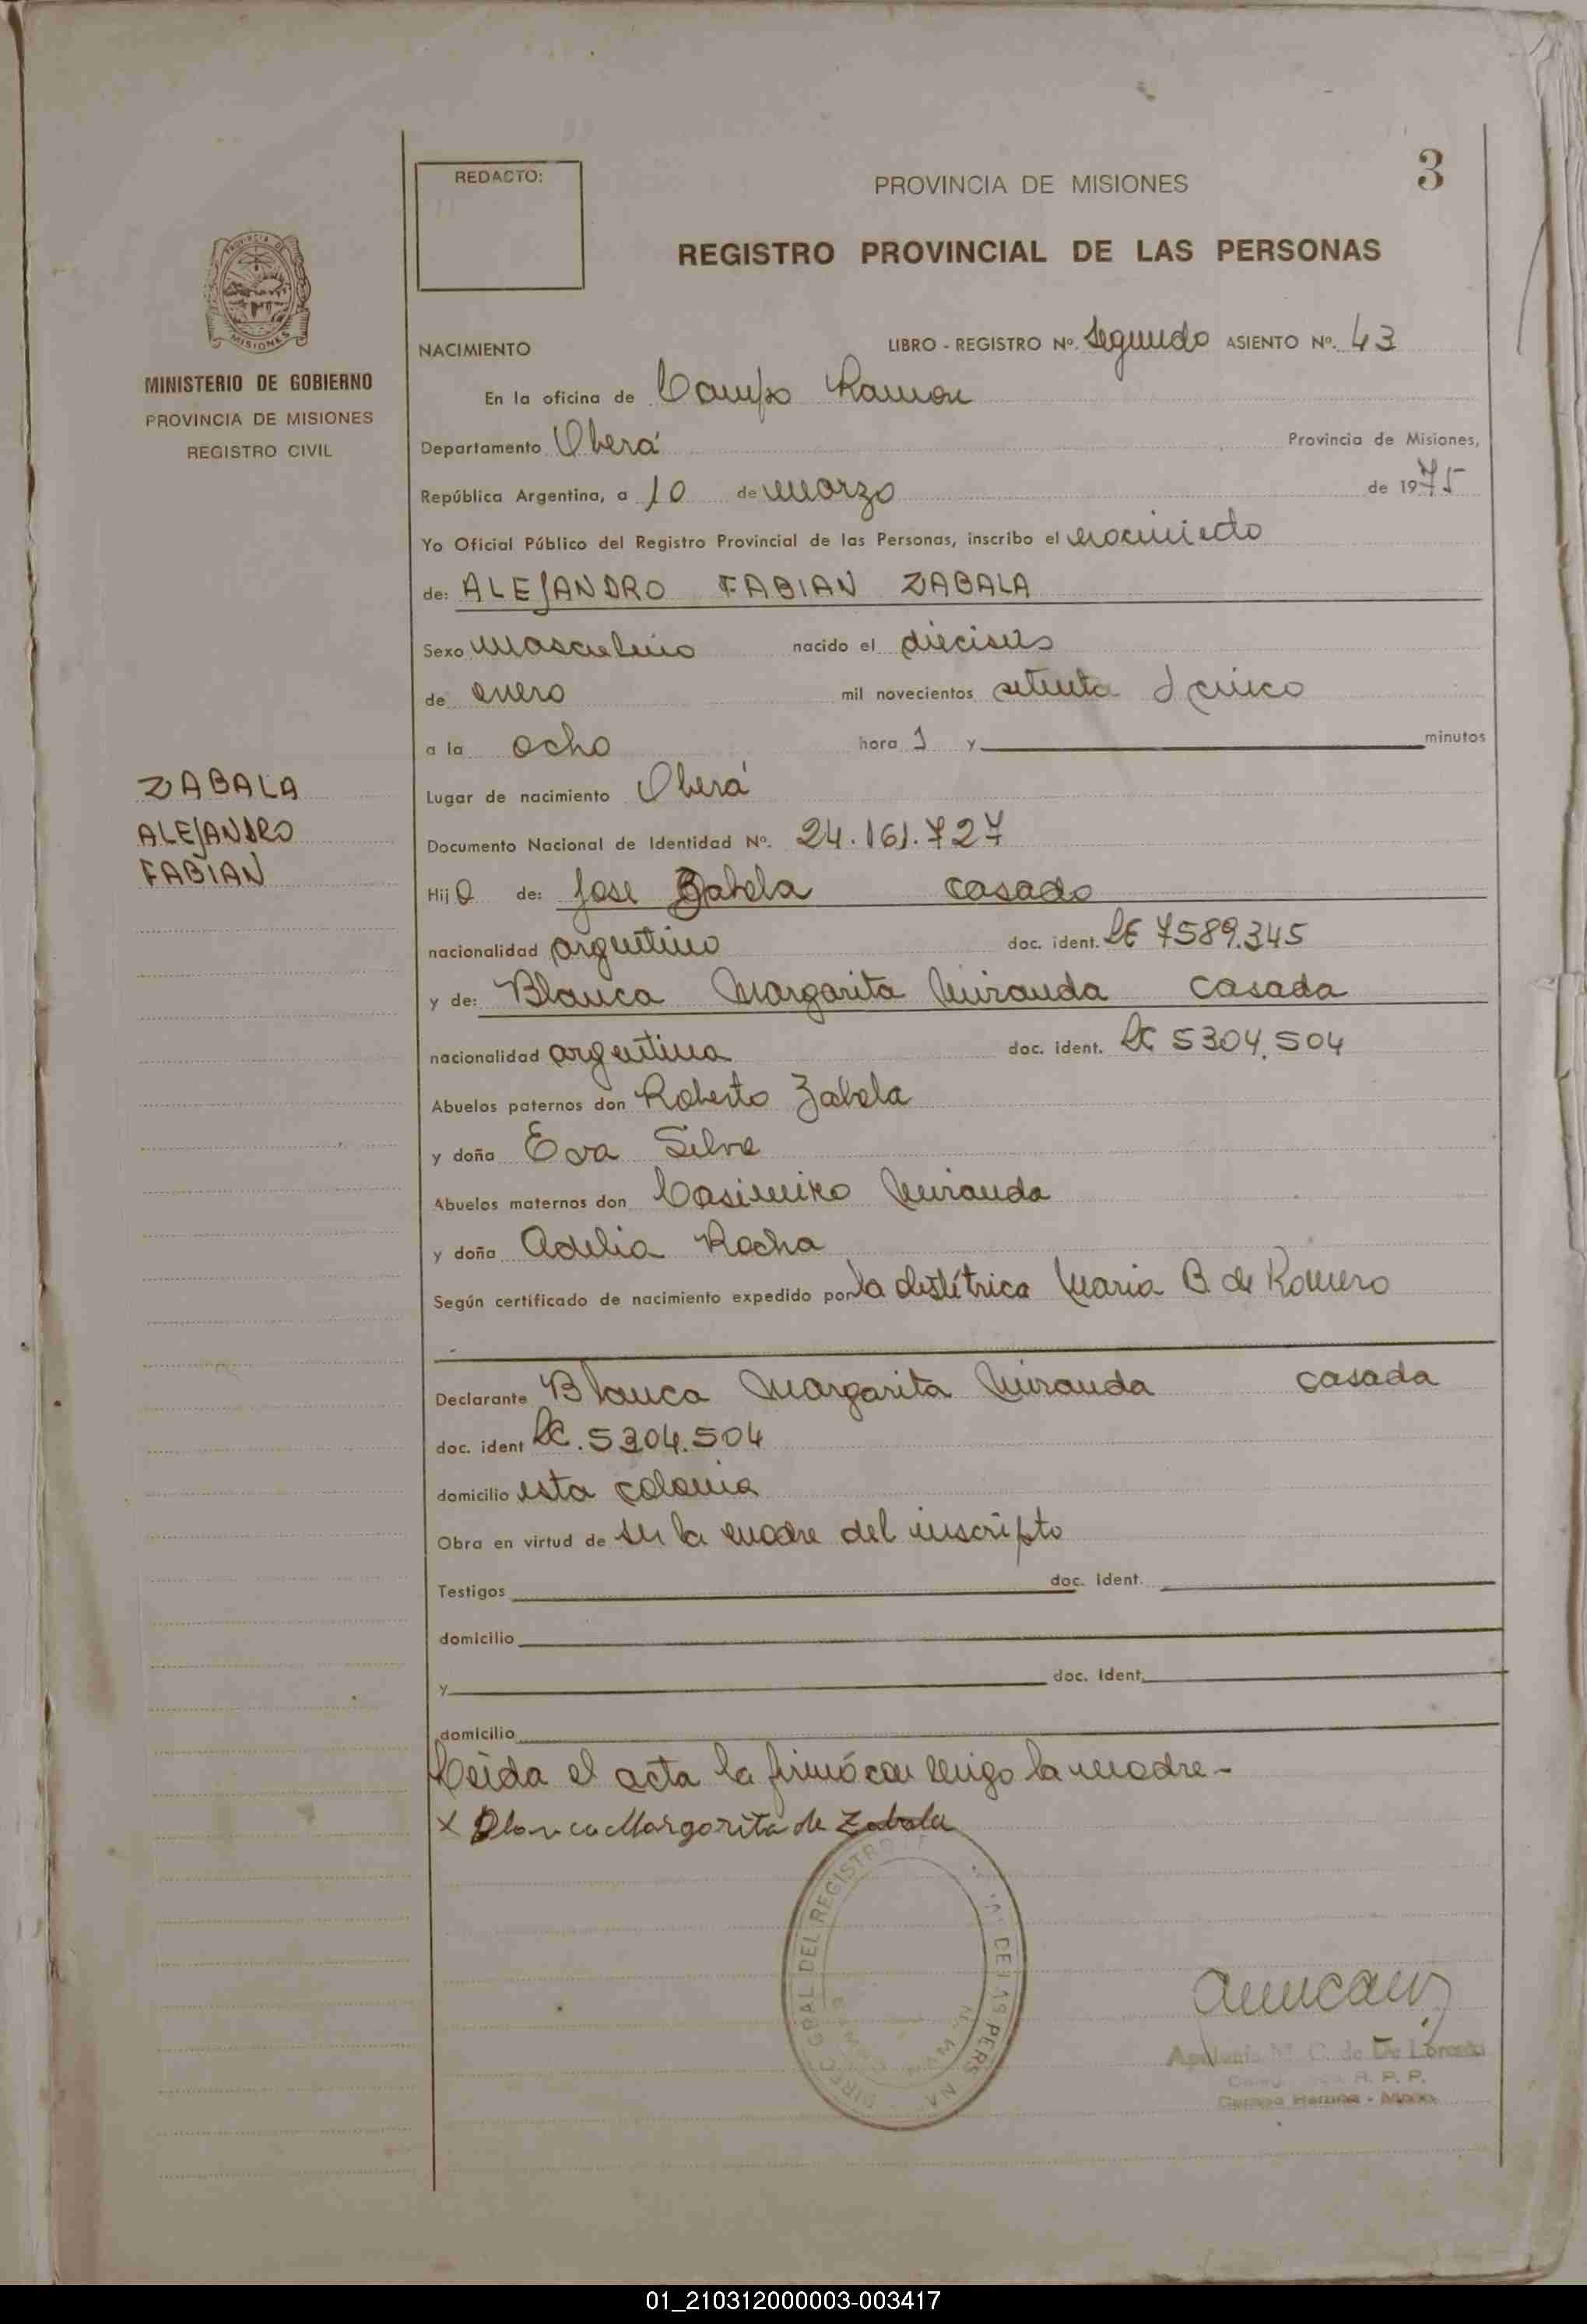 REDACTO:
PROVINCIA DE MISIONES
3
REGISTRO PROVINCIAL DE LAS PERSONAS
PROVINCIA DE
MISIONES
MINISTERIO DE GOBIERNO
PROVINCIA DE MISIONES
REGISTRO CIVIL
NACIMIENTO LIBRO - REGISTRO Nº. Segundo ASIENTO Nº. 43
En la oficina de Campo Ramon
Departamento Oberá Provincia de Misiones,
República Argentina, a 10 de marzo de 1975
Yo Oficial Público del Registro Provincial de las Personas, inscribo el nacimiento
de: ALEJANDRO FABIAN ZABALA
Sexo masculino nacido el dieciseis
de enero mil novecientos setenta y cinco
a la ocho hora s y minutos
ZABALA
ALEJANDRO
FABIAN
Lugar de nacimiento Oberá
Documento Nacional de Identidad Nº. 24.161.727
Hijo de: Jose Zabala casado
nacionalidad argentino doc. ident. LE 7589.345
y de: Blanca Margarita Miranda casada
nacionalidad argentina doc. ident. LC 5304.504
Abuelos paternos don Roberto Zabala
y doña Eva Silva
Abuelos maternos don Casimiro Miranda
y doña Adelia Rocha
Según certificado de nacimiento expedido por la obstétrica Maria B. de Romero
Declarante Blanca Margarita Miranda casada
doc. ident LC. 5304.504
domicilio esta colonia
Obra en virtud de ser la madre del inscripto
Testigos doc. Ident.
domicilio
y doc. Ident.
domicilio
Leída el acta la firmó con migo la madre -
x Blanca Margarita de Zabala
DIREC. GRAL DEL REGISTRO DE LAS PERS
M. C. de De Lorenzo
R. P. P.
Campo Ramón - Mnes.
01_210312000003-003417